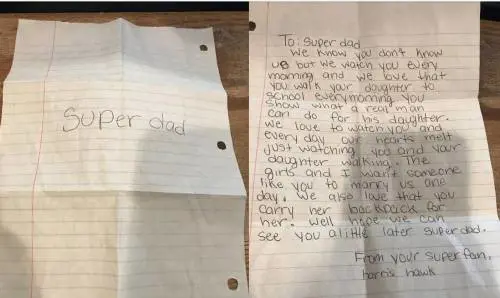 super dad
To: super dad
We know you don't know
us but we watch you every
morning and we love that
you walk your daughter to
school everymorning you
show what a real man
can do for his daughter.
we love to watch you and
every day our hearts melt
just watching you and your
daughter walking. The
girls and I want someone
like you to marry us one
day. We also love that you
carry her backpack for
her. well hope we can
see you alittle later super dad.
From your super fan,
harris hawk